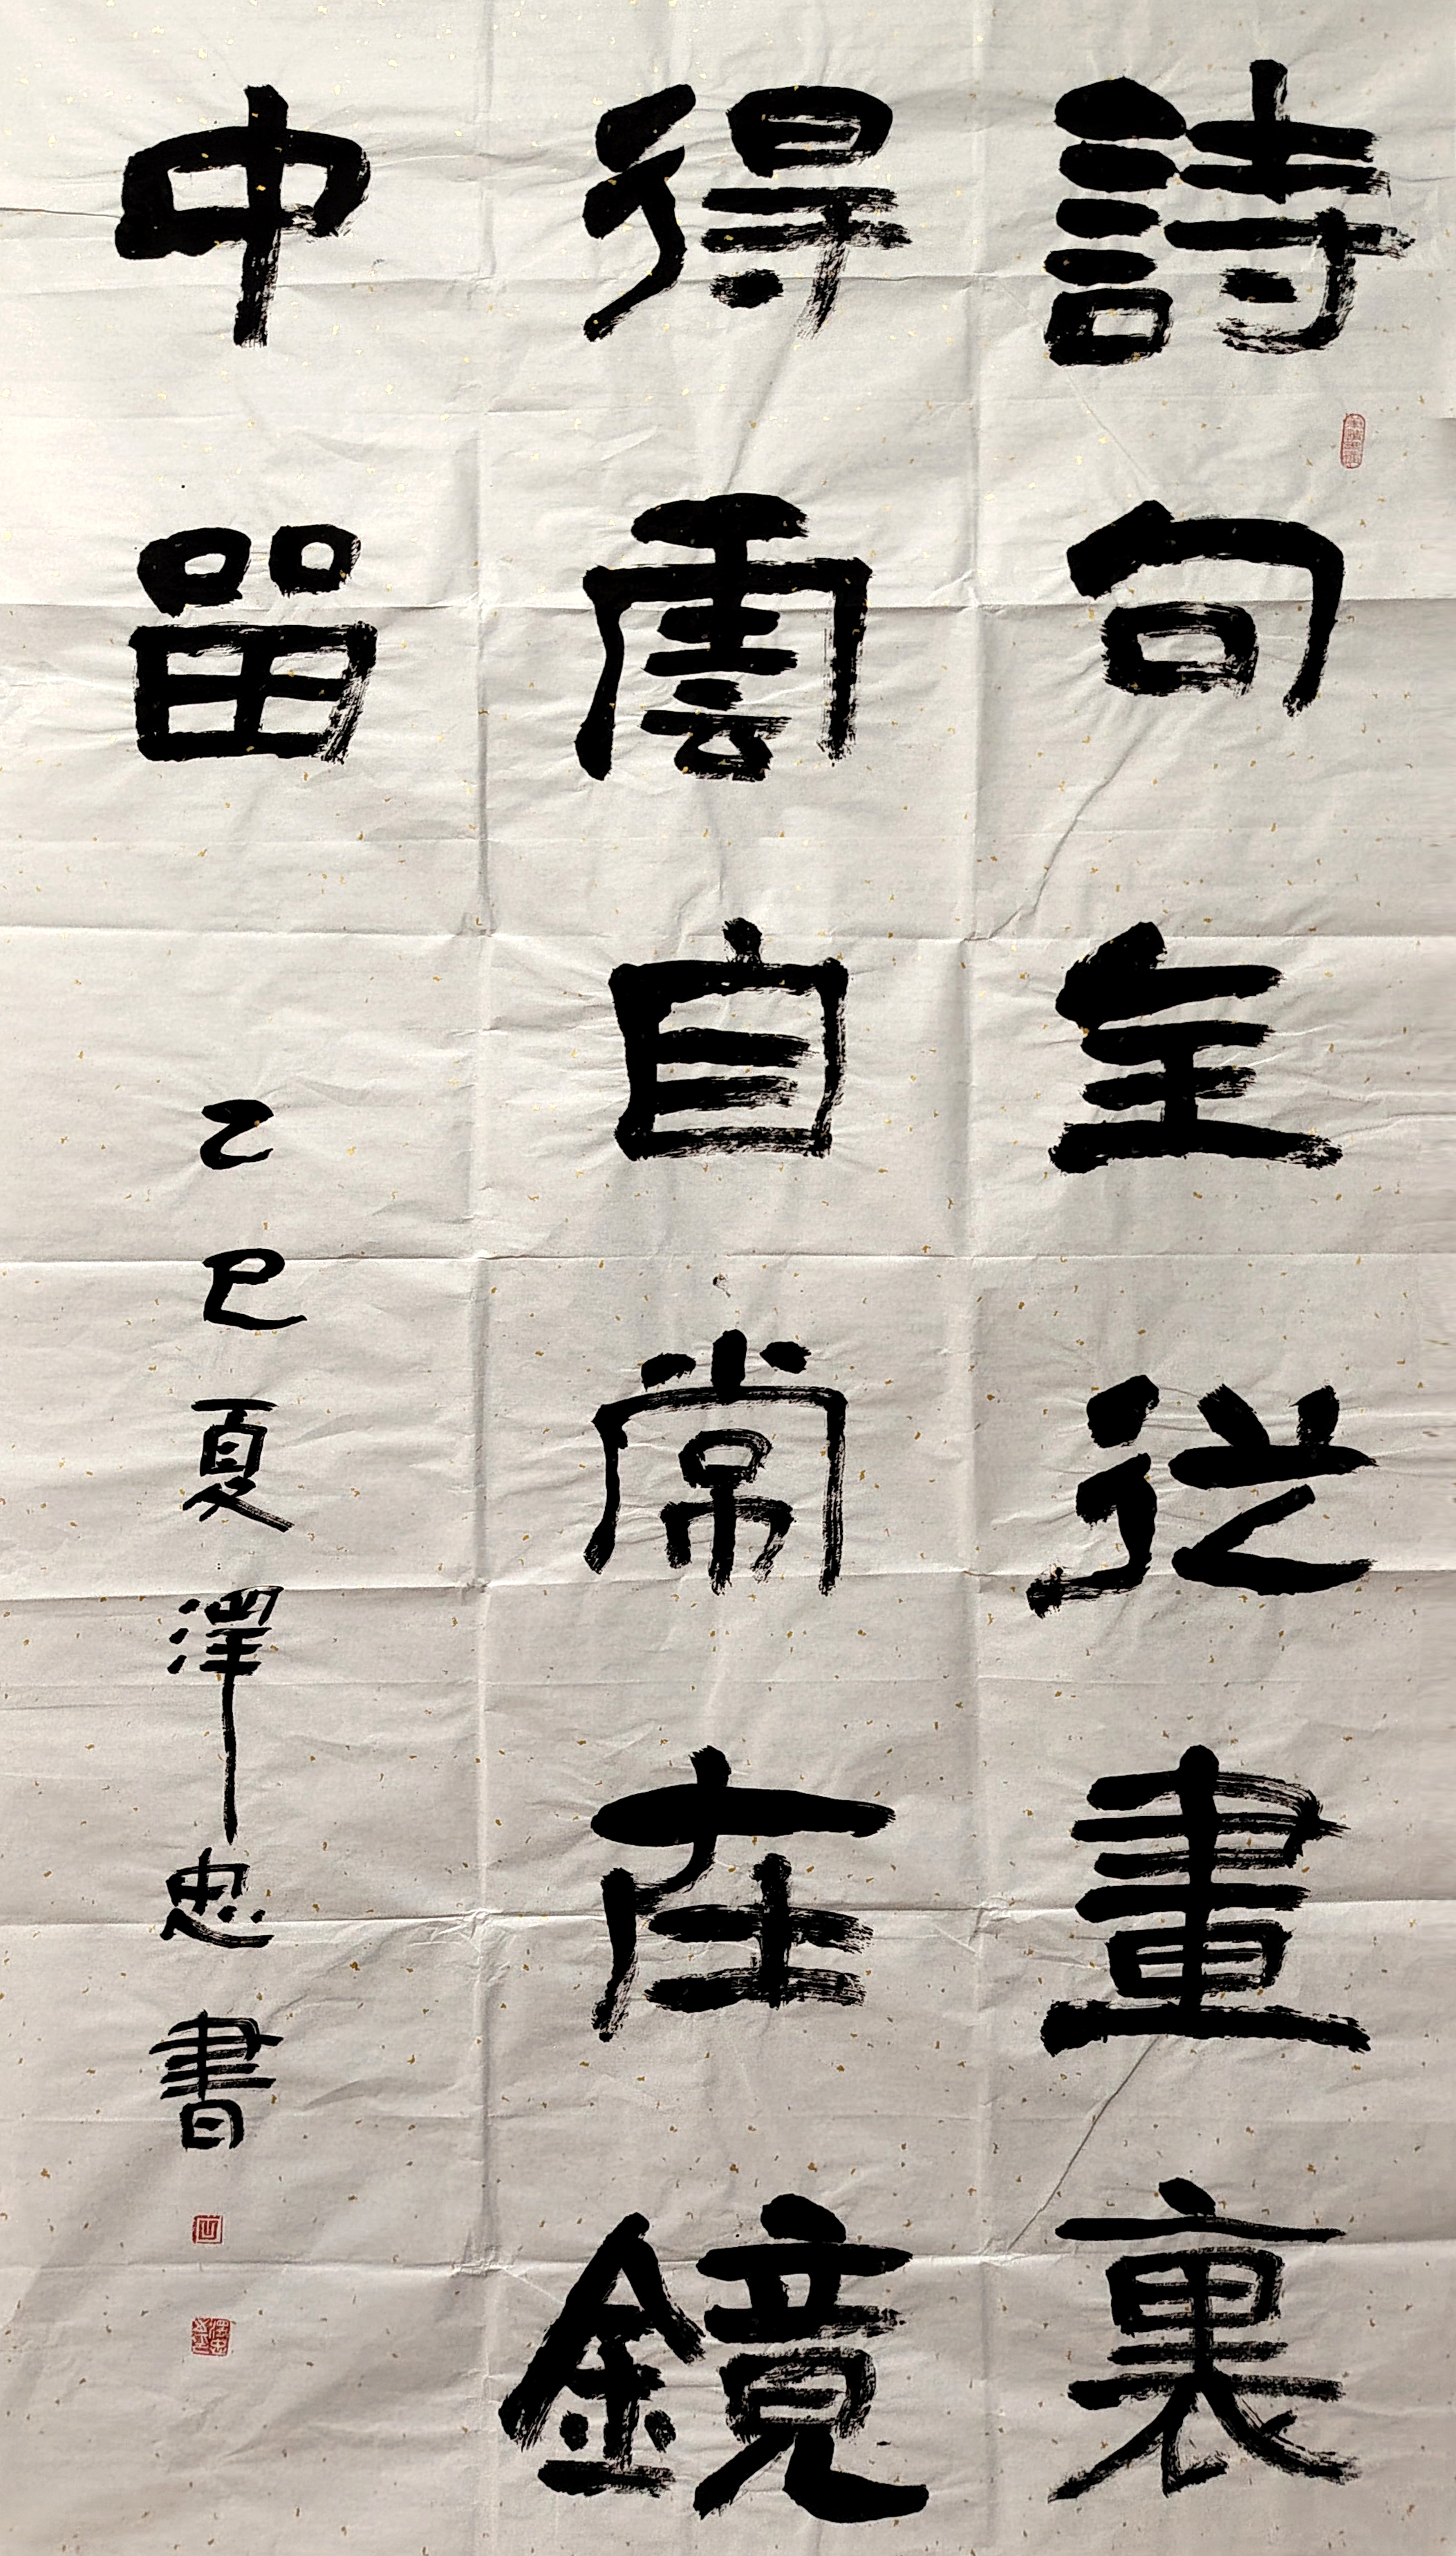 詩句從畫裏
得雲自常在鏡
中留
乙巳夏澤忠書